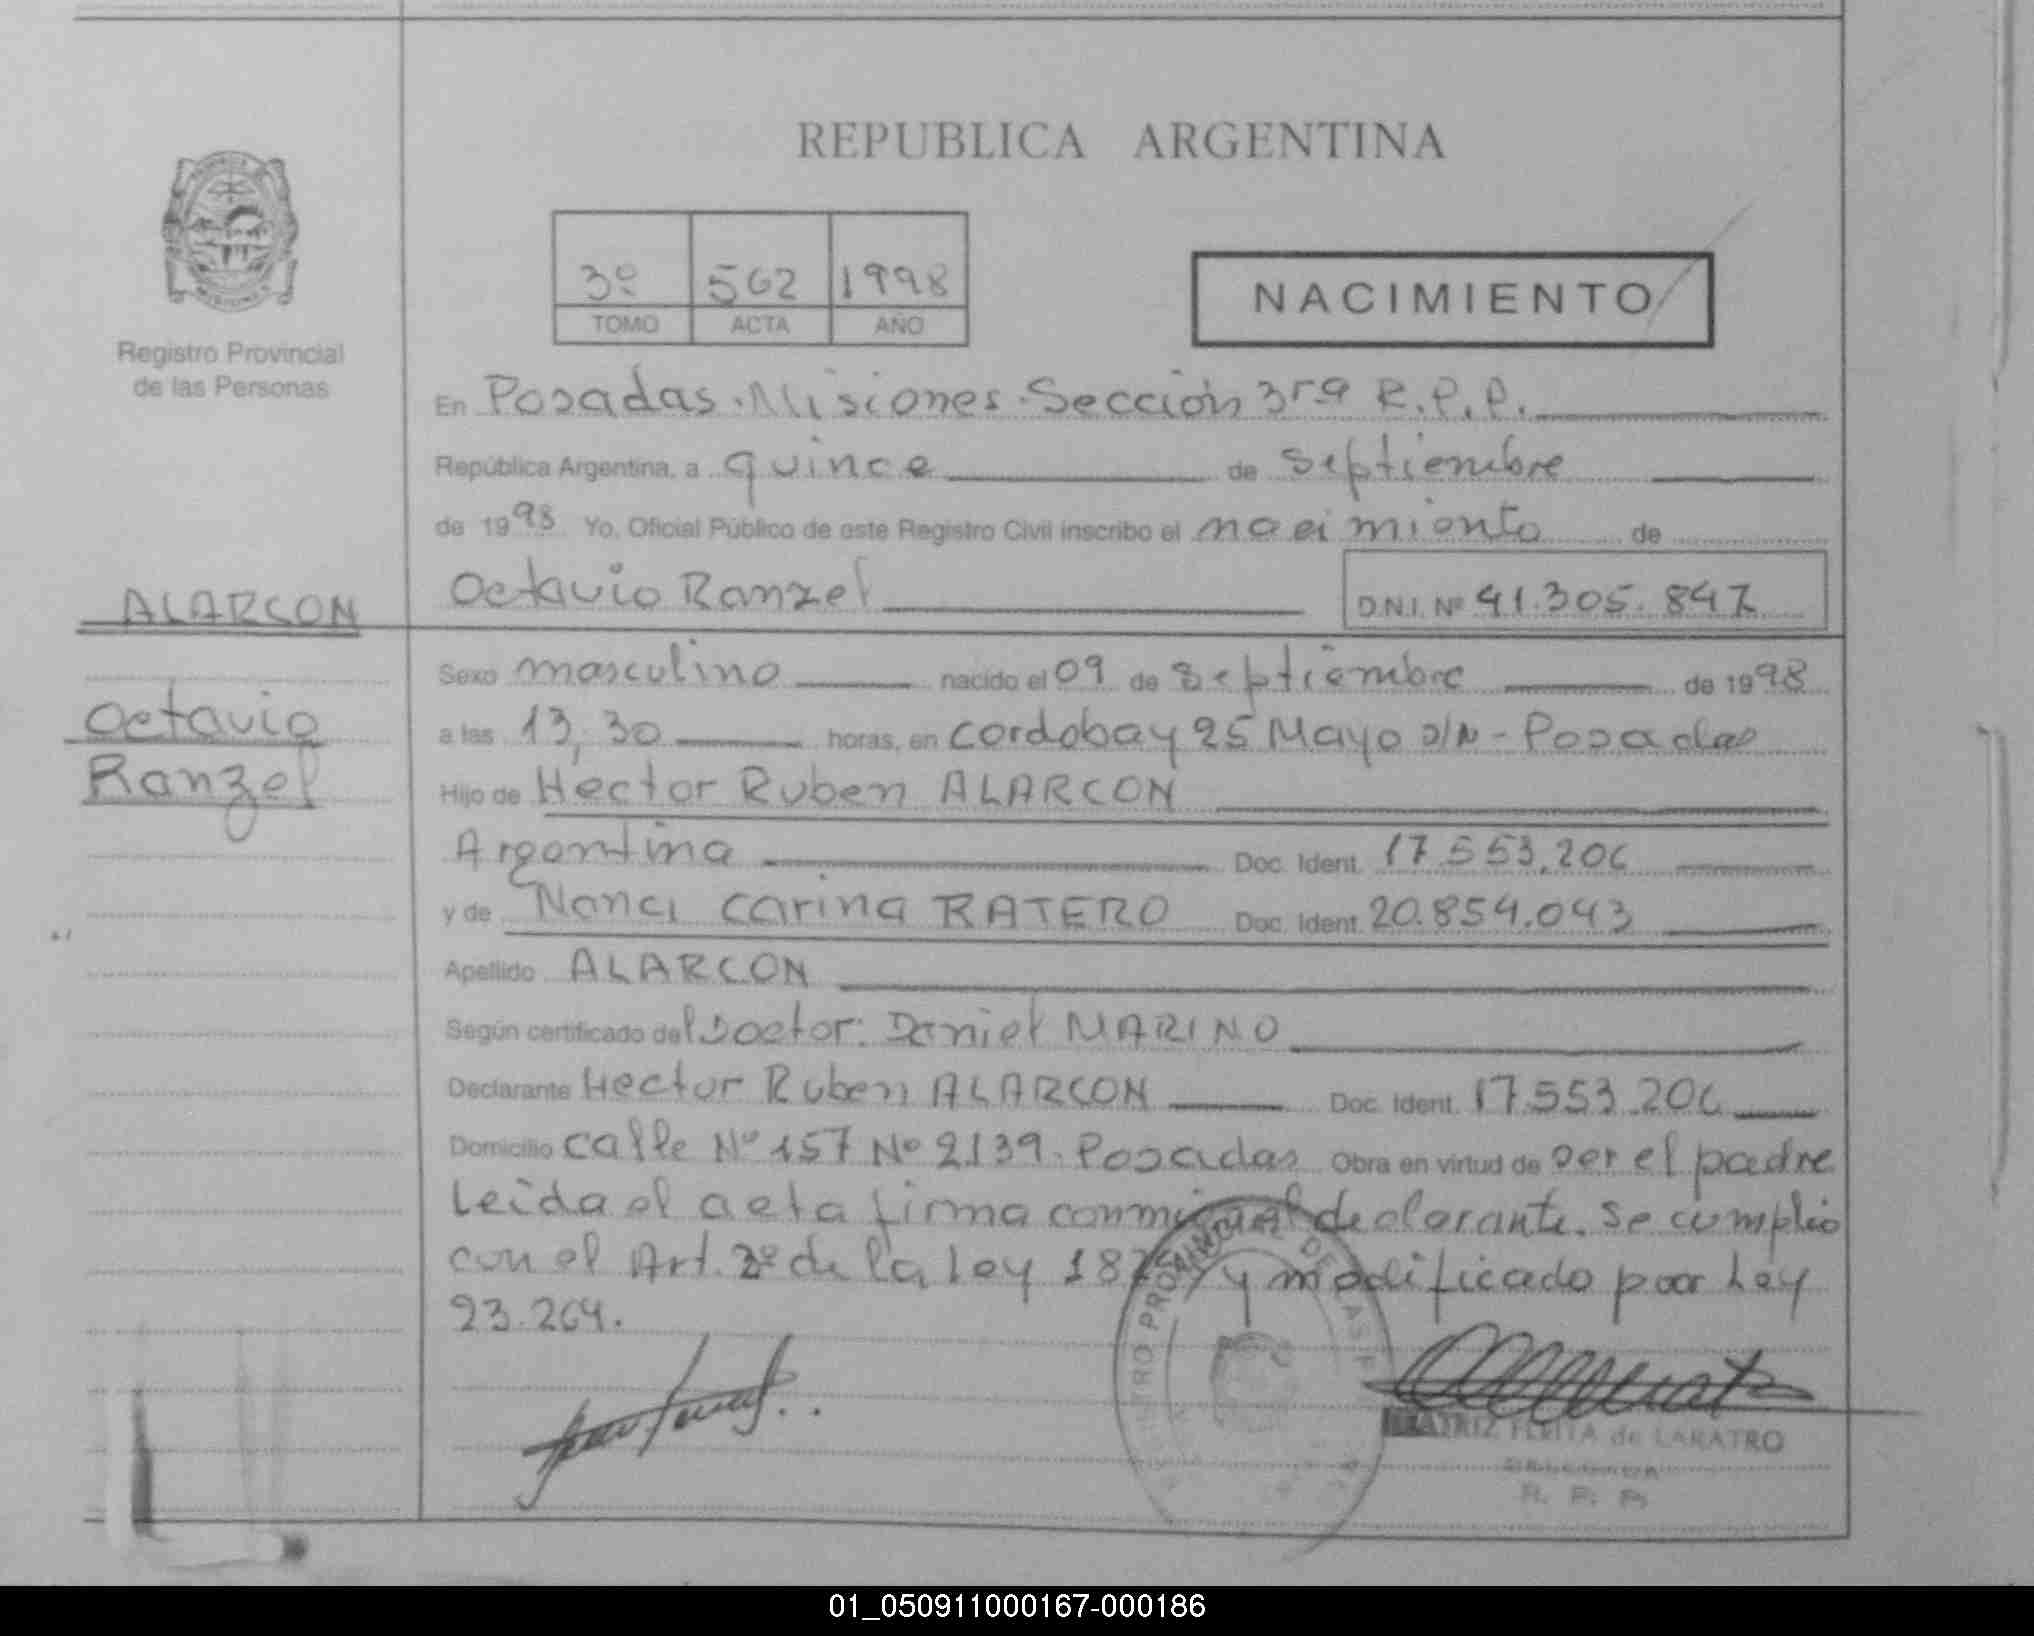 REPUBLICA ARGENTINA
3º 562 1998
TOMO ACTA AÑO
NACIMIENTO
Registro Provincial
de las Personas
En Posadas. Misiones. Sección 3ra R.P.P.
República Argentina, a quince de septiembre
de 1998 Yo, Oficial Público de este Registro Civil inscribo el nacimiento de
ALARCON
Octavio Ranzel
D.N.I. Nº 41.305.847
Octavio
Ranzel
Sexo masculino nacido el 09 de septiembre de 1998
a las 13,30 horas, en cordoba y 25 Mayo s/n - Posadas
Hijo de Hector Ruben ALARCON
Argentina Doc. Ident. 17.553.206
y de Nanci Carina RATERO Doc. Ident. 20.854.043
Apellido ALARCON
Según certificado del Doctor: Daniel MARINO
Declarante Hector Ruben ALARCON Doc. Ident. 17.553.206
Domicilio calle Nº 157 Nº 2139. Posadas Obra en virtud de ser el padre
Leida el acta firma conmigo el declarante. Se cumplio
con el Art. 2º de la Ley y modificado por Ley
23.264.
PROVINCIAL DE LAS
de LARATRO
R. P. P.
01_050911000167-000186